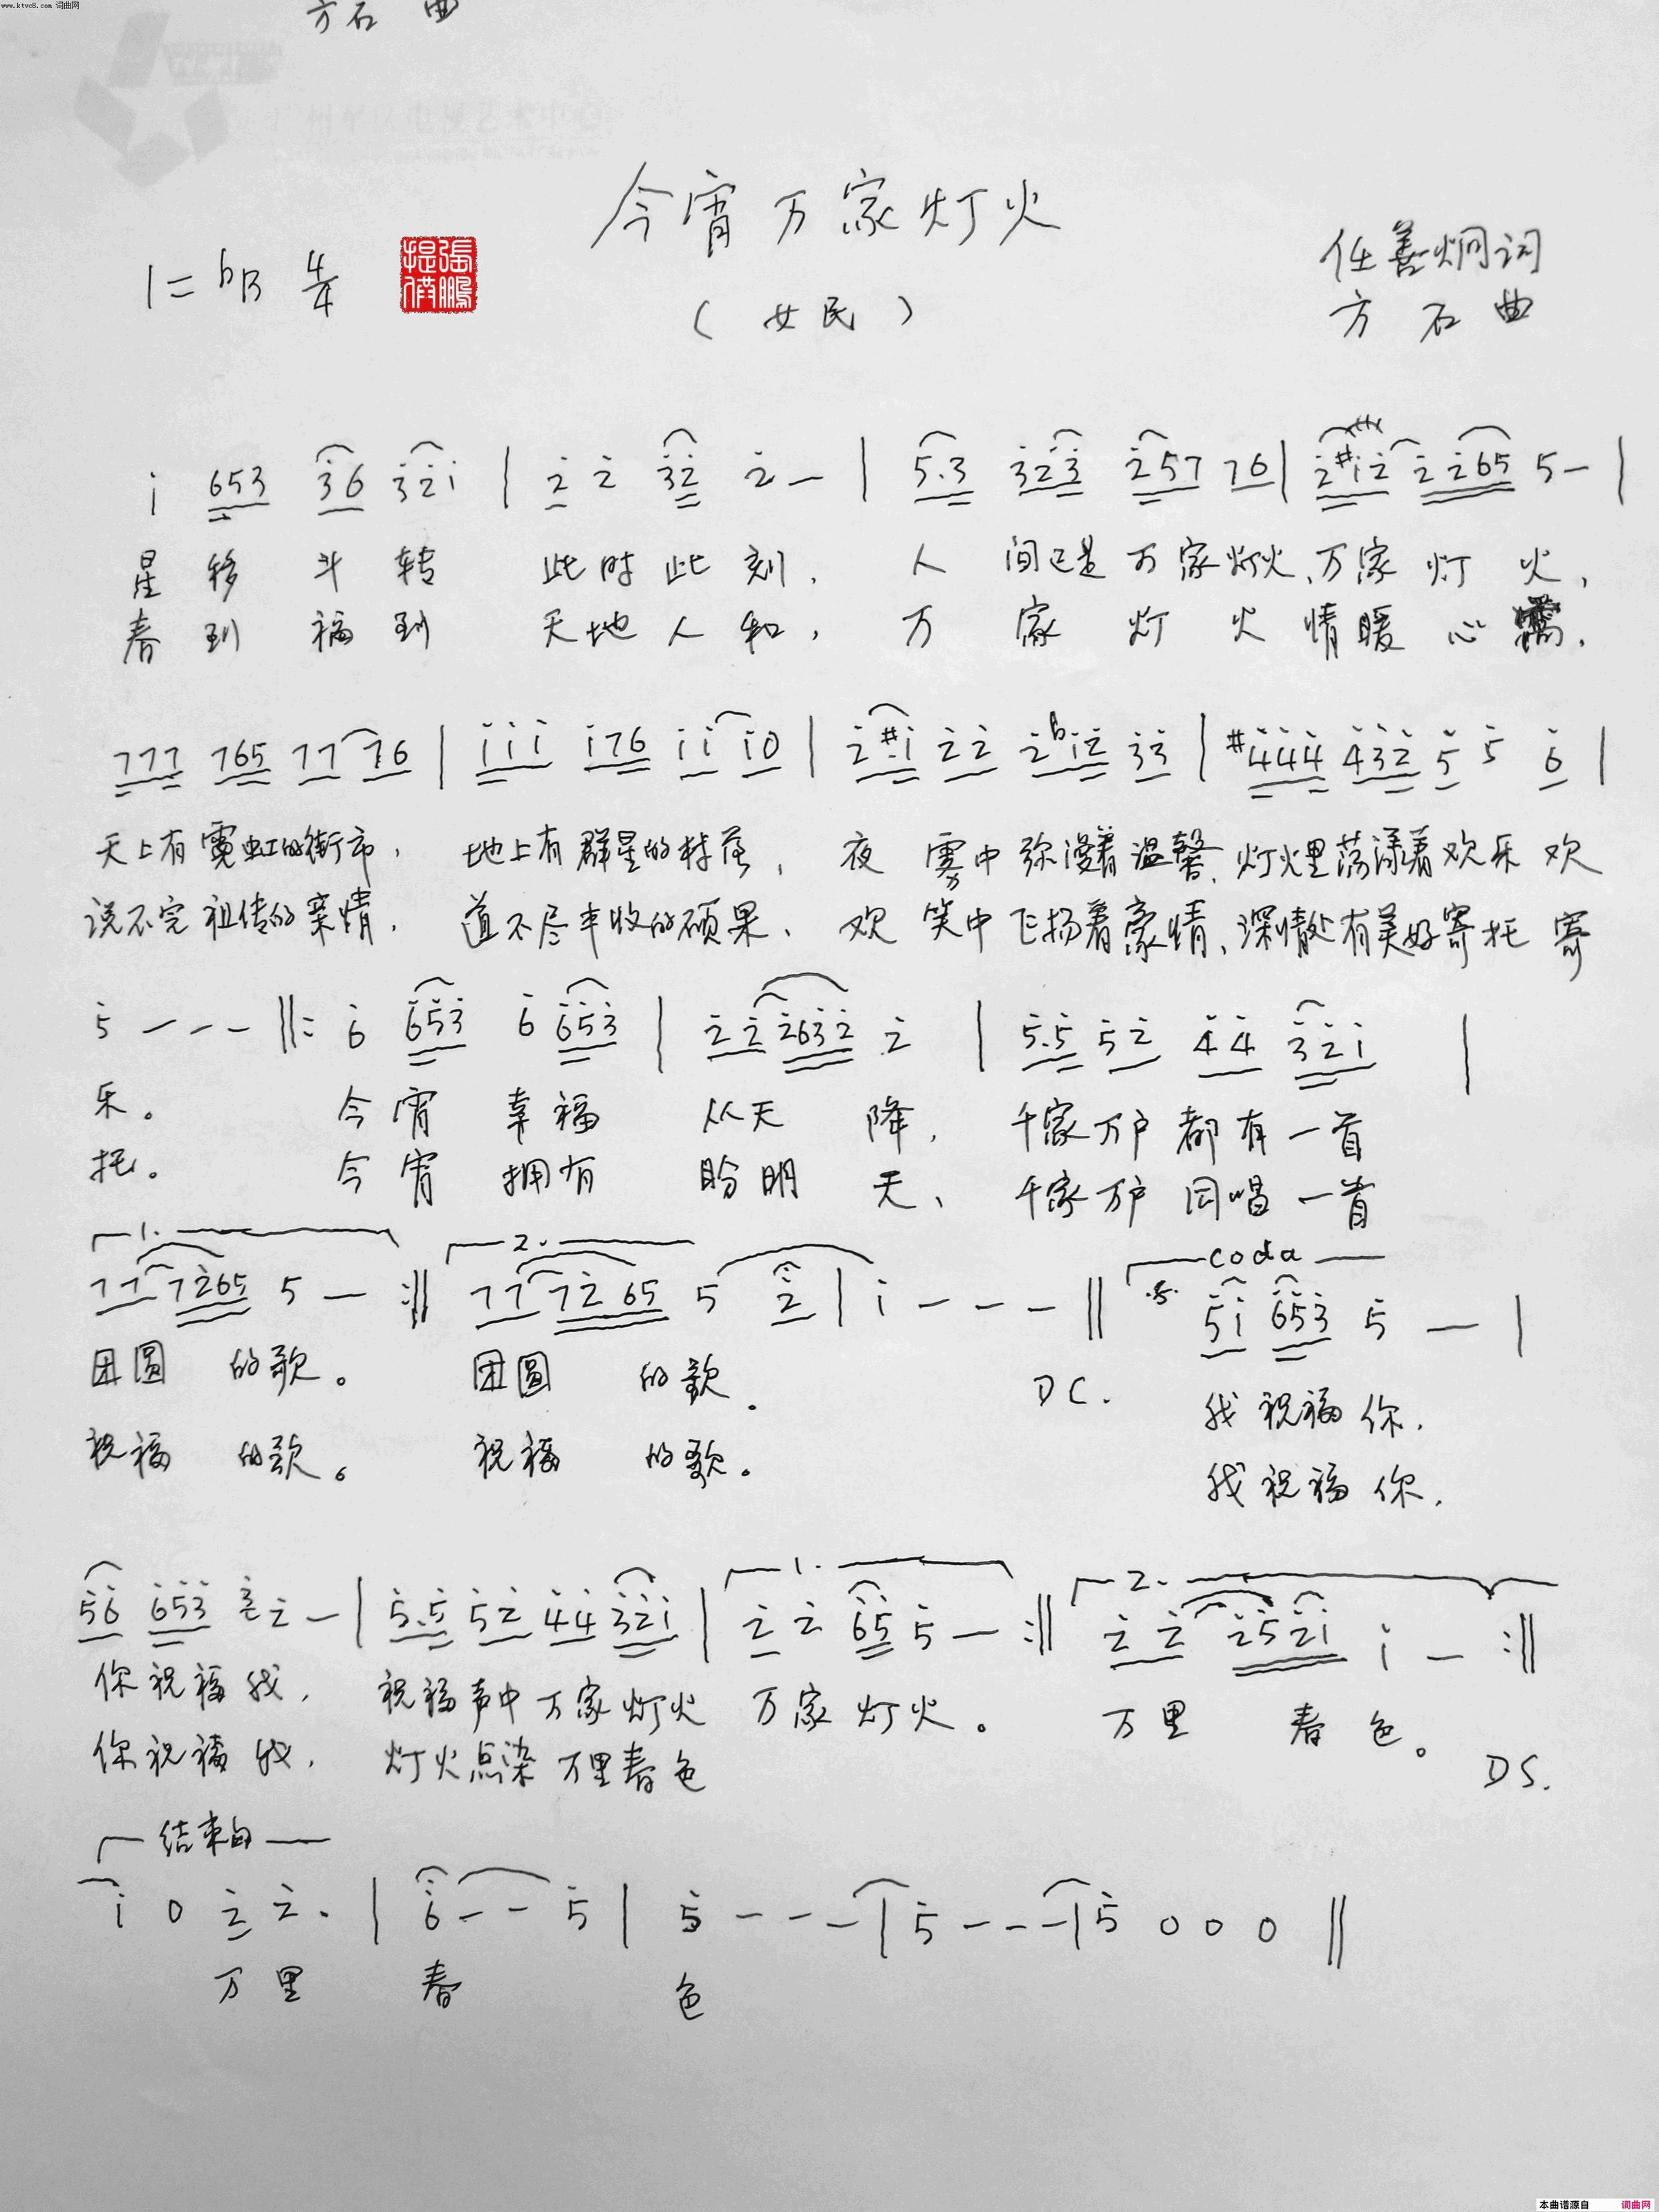 www.ktvc8.com 词曲网
方石 曲
今宵万家灯火
1=bB 4/4
張鵬提供
(女民)
任善炯词
方石曲
i 653 36 32i | 2 2 32 2 — | 5.3 323 257 76 | 2#i2 2265 5 — |
星移斗转 此时此刻, 人间已是万家灯火、万家灯火,
春到福到 天地人和, 万家灯火情暖心窝.
777 765 77 76 | iii i76 ii i0 | 2#i 22 2bi2 33 | #444 432 5 5 6 |
天上有霓虹的街市, 地上有群星的村落, 夜雾中弥漫着温馨、灯火里荡漾着欢乐 欢
说不完祖传的亲情, 道不尽丰收的硕果、 欢笑中飞扬着豪情、深情处有美好寄托 寄
5 — — — ‖: 6 653 6 653 | 22 2632 2 | 5.5 52 44 32i |
乐。 今宵幸福 从天降, 千家万户都有一首
托。 今宵拥有 盼明天、 千家万户同唱一首
1. 2. coda
77 7265 5 — :‖ 77 7265 5 2 | i — — — ‖ 5i 653 5 — |
团圆的歌。 团圆的歌. D.C. 我祝福你,
祝福的歌。 祝福的歌。 我祝福你,
1. 2.
56 653 3 2 — | 5.5 52 44 32i | 2 2 65 5 — :‖ 2 2 252i i — :‖
你祝福我, 祝福声中万家灯火 万家灯火。 万里春色。
你祝福我, 灯火点染万里春色 D.S.
结束句
i 0 2 2. | 6 — — 5 | 5 — — — | 5 — — — | 5 0 0 0 ‖
万里 春 色
本曲谱源自 词曲网